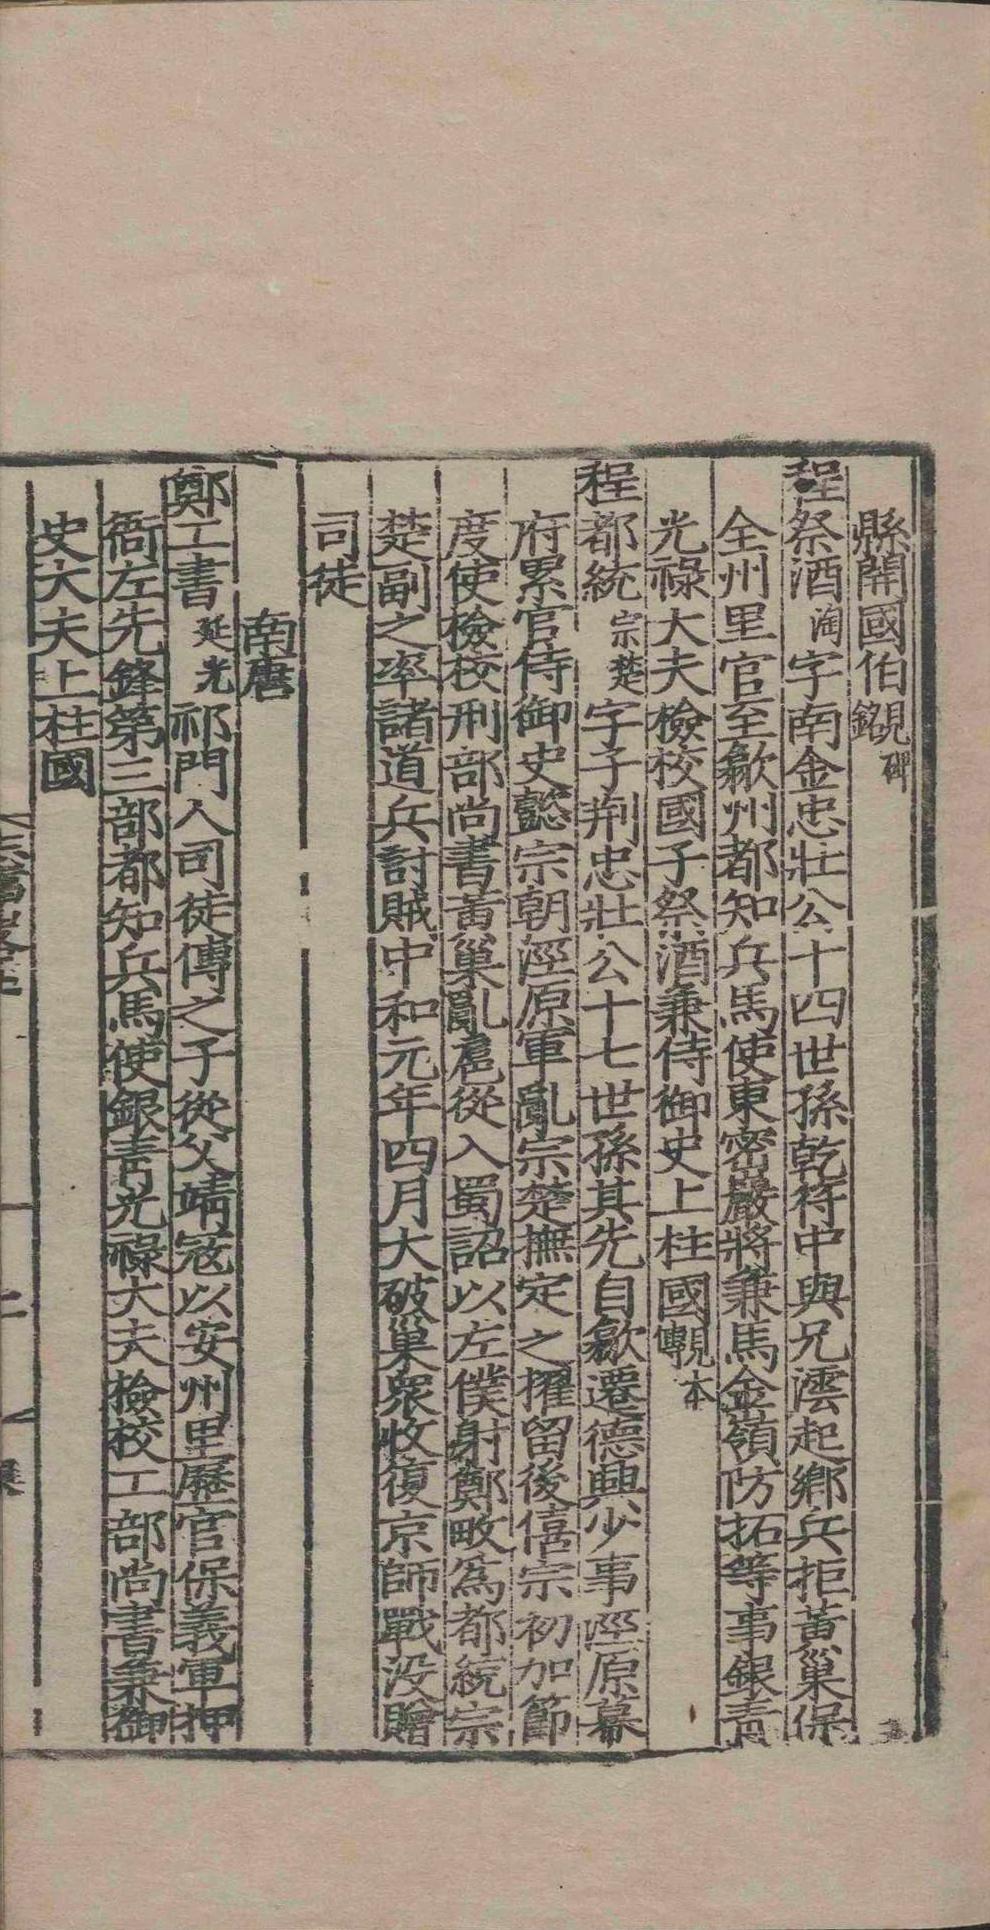 縣開國伯見碑銘
程祭酒淘字南金忠壯公十四世孫乾符中與兄澐起鄉兵拒黃巢保
全州里官至歙州都知兵馬使東密巖將兼馬金嶺防拓等事銀青
光祿大夫檢校國子祭酒兼侍御史上柱國見本
程都統宗楚字子荆忠壯公十七世孫其先自歙遷德興少事涇原幕
府累官侍御史懿宗朝涇原軍亂宗楚撫定之擢留後僖宗初加節
度使檢校刑部尚書黃巢亂扈從入蜀詔以左僕射鄭畋爲都統宗
楚副之率諸道兵討賊中和元年四月大破巢衆收復京師戰没贈
司徒
南唐
鄭工書延光祁門人司徒傳之子從父靖寇以安州里歷官保義軍押
衙左先鋒第三部都知兵馬使銀青光祿大夫檢校工部尚書兼御
史大夫上柱國